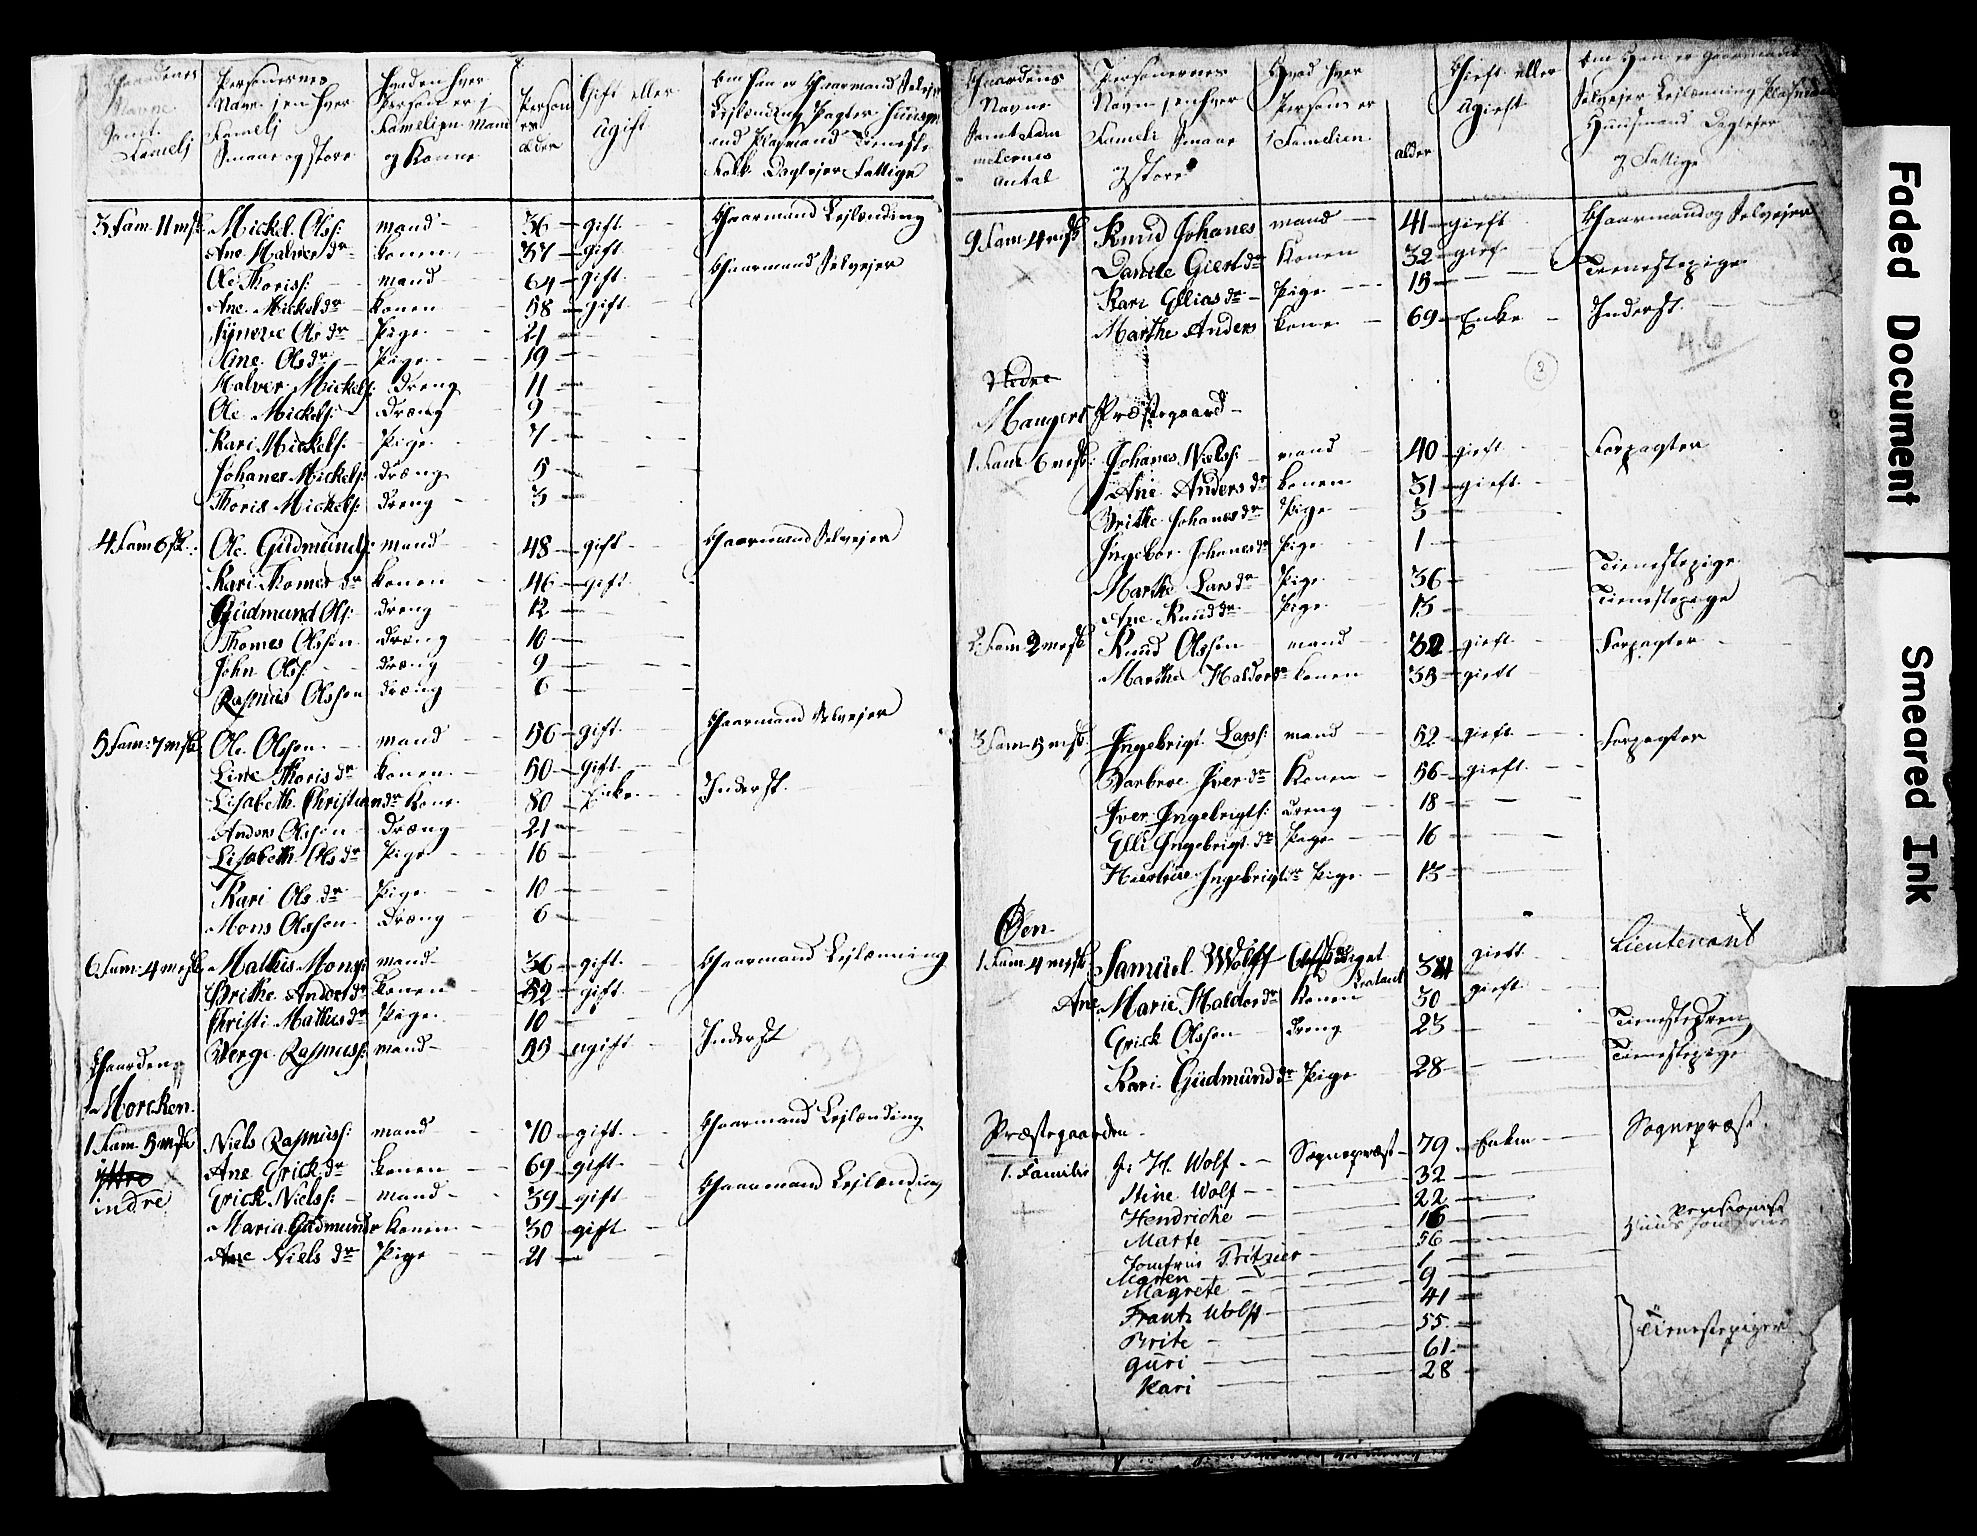 Gaardenes Navne Samt Famelj | Personernes Navne j en hver Famelj Smaae og store | Hvad en hver Person er j Familien Mand og Konne | Person ers alder | Gift eller Ugift | om Han er Gaarmand Selvejer Lejlænding Pagter Huusm ind Plasmand Tieneste Folk Daglejer Fattige
3 Fam 11 msk | Mickel Olss: | mand | 36 | gift | Gaarmand Lejlænding
Ane Halvers dr | konen | 37 | gift
Ole Thoriss: | mand | 64 | gift | Gaarmand Selvejer
Ane Mickels dr | konen | 58 | gift
Synneve Ols dr | Pige | 21
Stine Ols dr | Pige | 19
Halver Mickels: | dreng | 11
Ole Mickels: | dræng | 9
Kari Mickels: | Pige | 7
Johanes Mickels: | dræng | 5
Thoris Mickels: | dreng | 3
4 Fam 6 sk: | Ole Gudmunds: | mand | 48 | gift | Gaarmand Selvejer
Kari Thomes dr | konen | 46 | gift
Gudmund Ols: | dreng | 12
Thomes Olssen | dræng | 10
John Olss: | dræng | 9
Rasmus Olssen | dræng | 6
5 Fam: 7 msk: | Ole Olssen | mand | 56 | gift | Gaarmand Selvejer
Line Thoris dr | konen | 50 | gift
Lisabeth Christian dr | Kone | 80 | Enke | Inderst
Anders Olssen | dræng | 21
Lisabeth Ols dr | Pige | 16
Kari Ols dr | Pige | 10
Mons Olssen | dræng | 6
6 Fam: 4 msk | Mathis Monss | mand | 36 | gift | Gaarmand Lejlænning
Brithe Anders dr | konen | 52 | gift
Christi Mathis dr | Pige | 10
Børge Rasmuss: | mand | 55 | ugift | Inderst
Gaarden
Morcken
1 Fam 5 msk | Niels Rasmuss: | mand | 70 | gift | Gaarmand Lejlænding
yttre | Ane Erick dr | konen | 69 | gift
indre | Erick Nielss: | mand | 39 | gift | Gaarmand Lejlænding
Maria Gudmunds | konen | 30 | gift
Ane Niels dr | Pige | 21
Gaardens Navne Samt Fam melernes Antal | Personernes Navn j en hver Fameli Smaae og store | Hvad hver Person er i Familien | alder | Gieft eller Ugieft | om Han er Gaarmand Selvejer Lejlænning Plasmand Huusmand Daglejer og Fattige
9 Fam 4 msk | Knud Johanes | mand | 41 | gieft | Gaarmand og Selvejer
Danile Giert dr | Konen | 32 | gieft
Kari Ellias dr | Pige | 15 | Tienestepige
Marthe Anders | kone | 69 | Enke | Inderst
46
3
Nedre
Mangers Præstegaard
1 Fam 6 msk: | Johanes Nielss: | mand | 40 | gieft | Forpagter
Ane Anders dr | konen | 31 | gieft
Brithe Johanes dr | Pige | 3
Ingebor Johanes dr | Pige | 1
Marthe Lars dr | Pige | 36 | Tienestepige
Ane Knud dr | Pige | 15 | Tienestepige
2 Fam 2 msk | Knud Olssen | mand | 32 | gieft | Forpagter
Marthe Haldor dr | konen | 35 | gieft
3 Fam 5 msk | Ingebrigt Larss: | mand | 52 | gieft | Forpagter
Barbroe Iver dr | Konen | 56 | gieft
Iver Ingebrigts: | dreng | 18
Elli Ingebrigt dr | Pige | 16
Ingebrigt dr | Pige | 13
Øen
1 Fam 4 msk | Samuel Wolff | 34 | gieft | Lieutenant
Ane Marie Haldor dr | Konen | 30 | gieft
Erick Olssen | dreng | 23 | Tienestedreng
Kari Gudmund dr | Pige | 28 | Tienestepige
Præstegaarden
1 Familie | J: H. Wolf | Sognepræst | 79 | Enkm | Sognepræst
Stine Wolf | 32
Hendriche | 22
Marte | 16 | Pensionist
Jomfrue Fritzner | 56 | Huus Jomfrue
Maren | 1
Magrete | 9
Frantz Wolff | 41
Brite | 55 | Tienestepiger
Guri | 61
Kari | 28
Faded Document
Smeared Ink